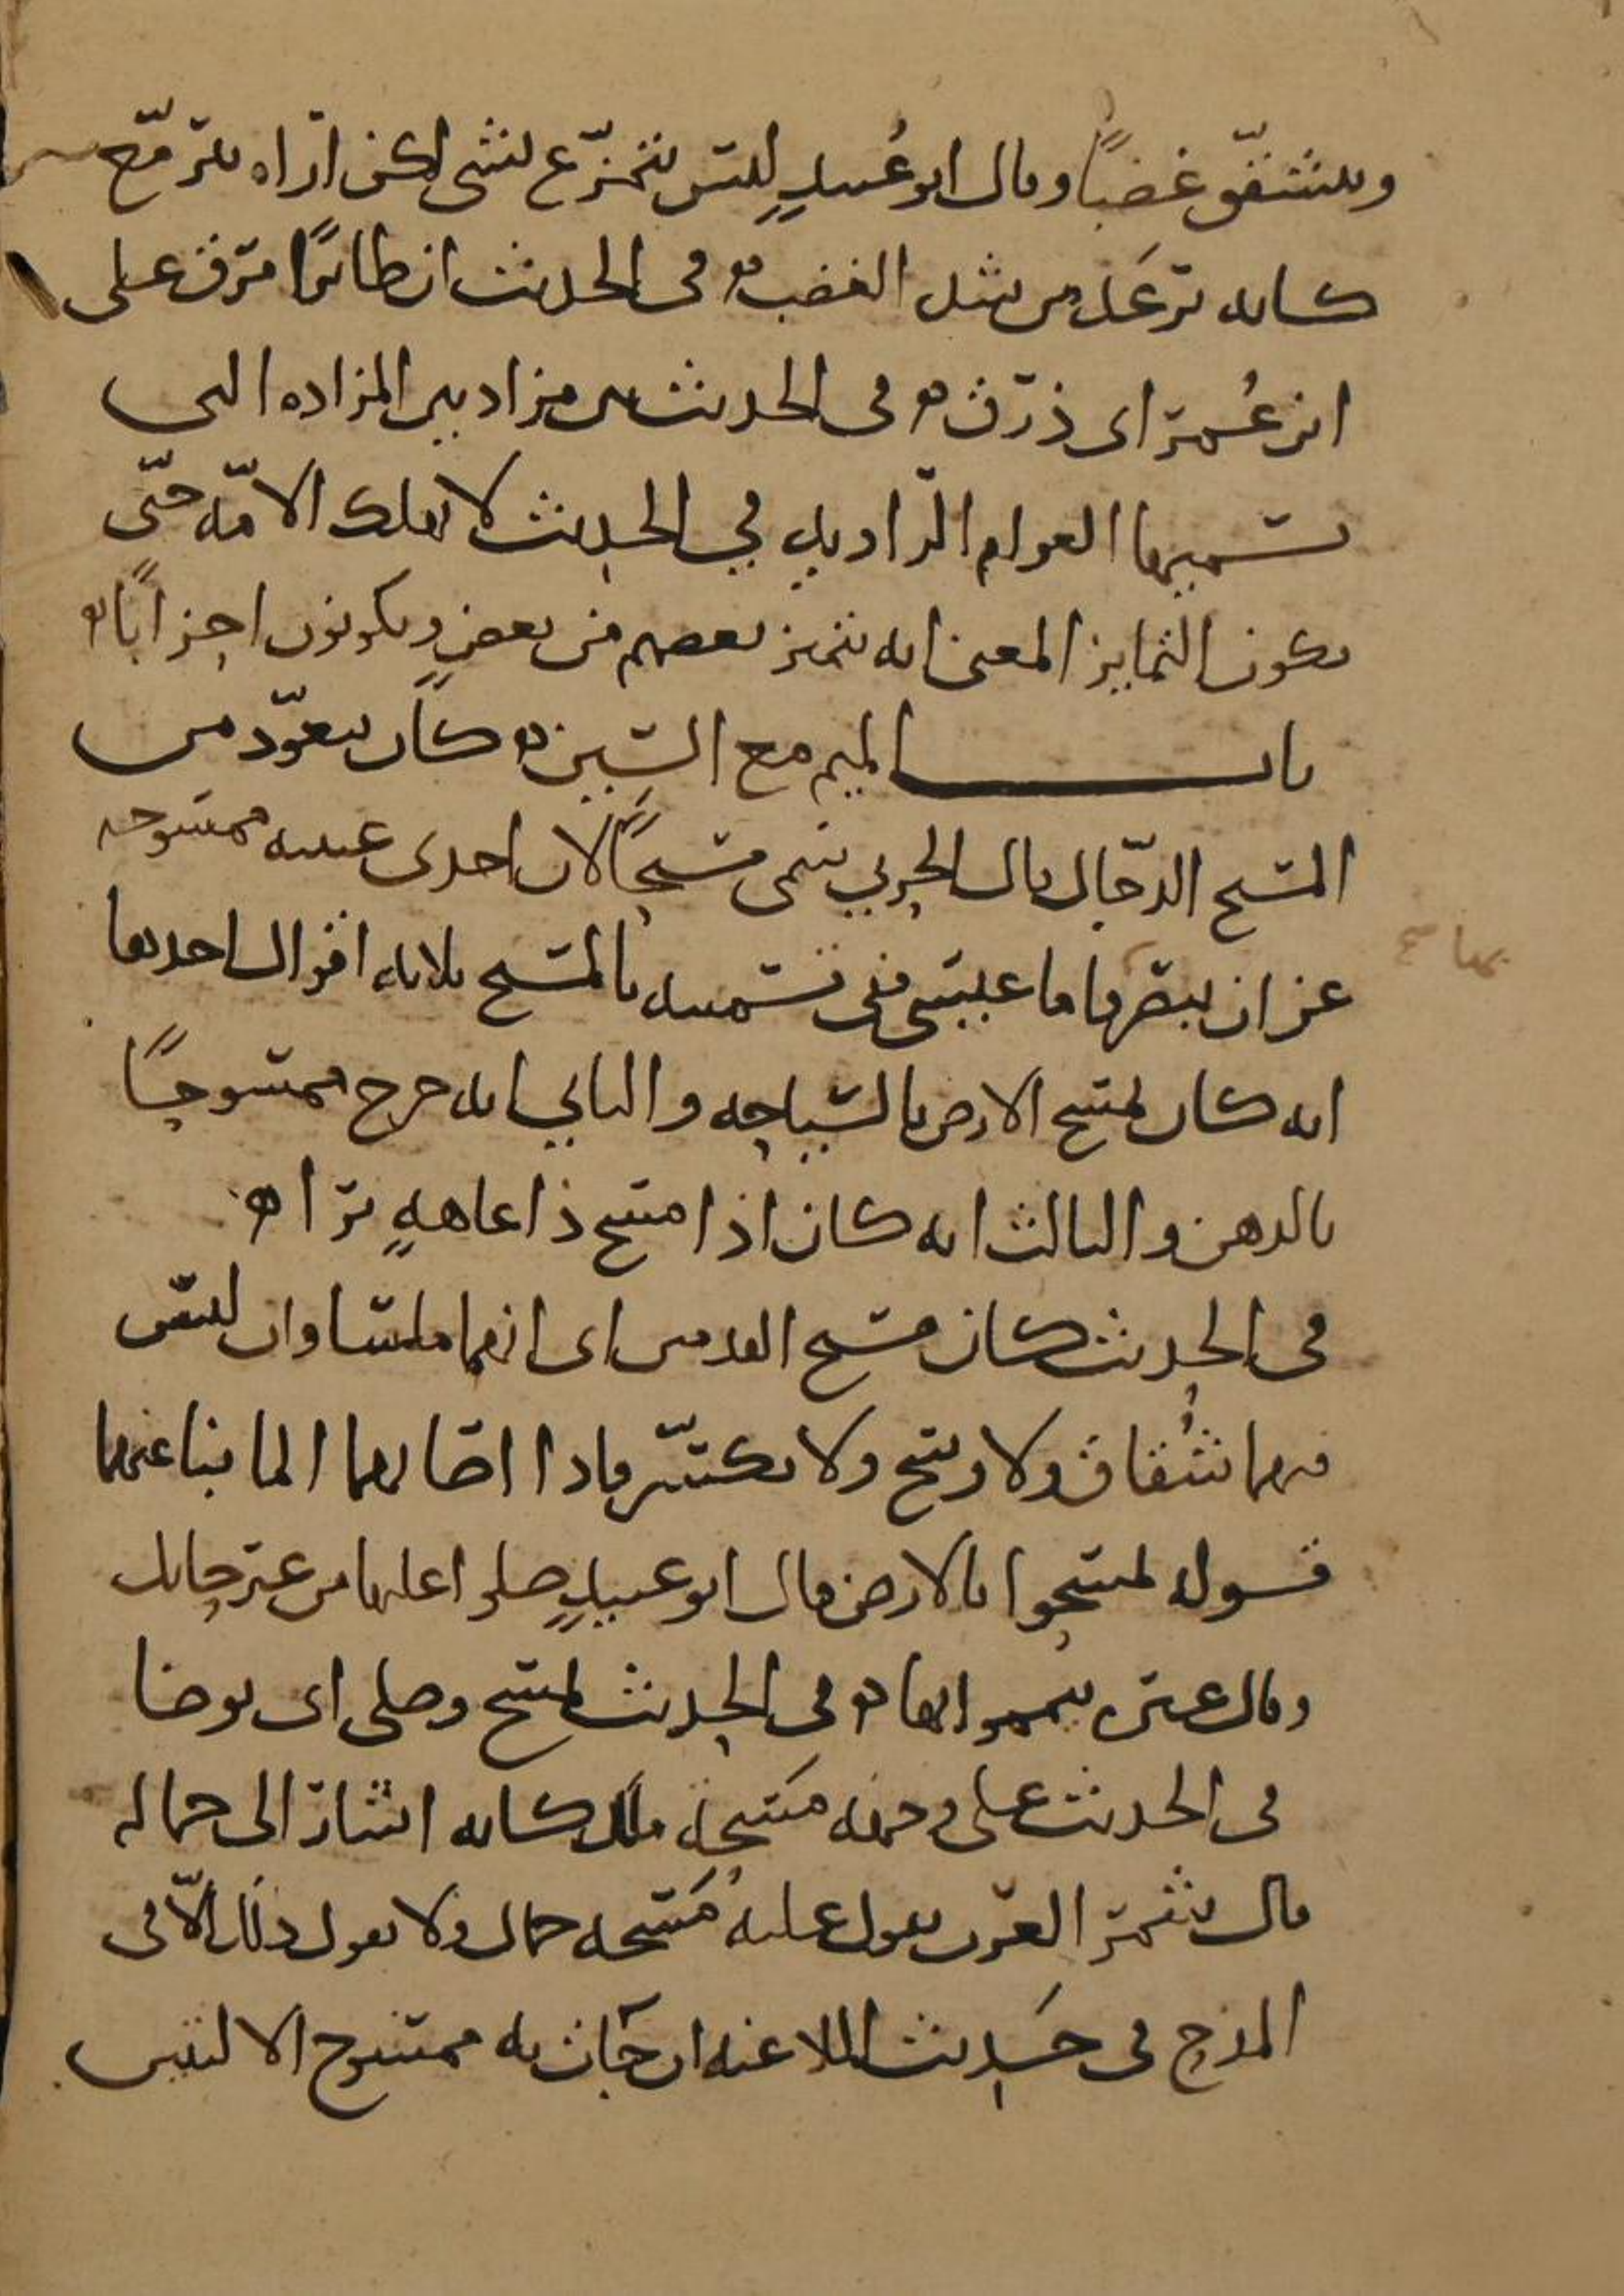 ويتشقق غضبًا وقال ابو عُبيدٍ ليس يتمزّع بشي ولكن اُراه يترمّع
كانه ترعَد من شدة الغضب في الحديث ان طائرًا مزق على
ابن عُمر اى ذرق في الحديث من مزادتين المزاده التى
تسميها العوام الراويه في الحديث لا تهلك الامّه حتّى
يكون التمايز المعنى انه يتميز بعضهم من بعضٍ ويكونون احزابًا
باب الميم مع السين كان يتعوّذ من
المسيح الدجّال قال الحربي سمى مسيحًا لان احدى عينيه ممسوحه
عن ان يبصر بها فاما عيسى ففى تسميته بالمسيح ثلاثه اقوال احدها
انه كان يمسح الارض بالسياحه والثاني انه خرج ممسوحًا
بالدهن والثالث انه كان اذا مسح ذا عاهةٍ برا
في الحديث كان مسيح القدمين اى انهما ملساوان ليس
فيهما شُقاق ولا وسخ ولا تكسّر فاذا اصابهما الما نبا عنهما
قوله تمسحوا بالارض قال ابو عبيدٍ صلوا عليها من غير حايل
وقال غيره تيمموا بها في الحديث تمسح وصلى اى توضا
في الحديث على وجهه مَسحة ملك كانه اشار الى جماله
قال شمر العرب تقول عليه مَسحه جمال ولا تقول ذلك الّا في
المدح في حَديث الملاعنه ان جَات به ممسوح الاليتين
بها صح